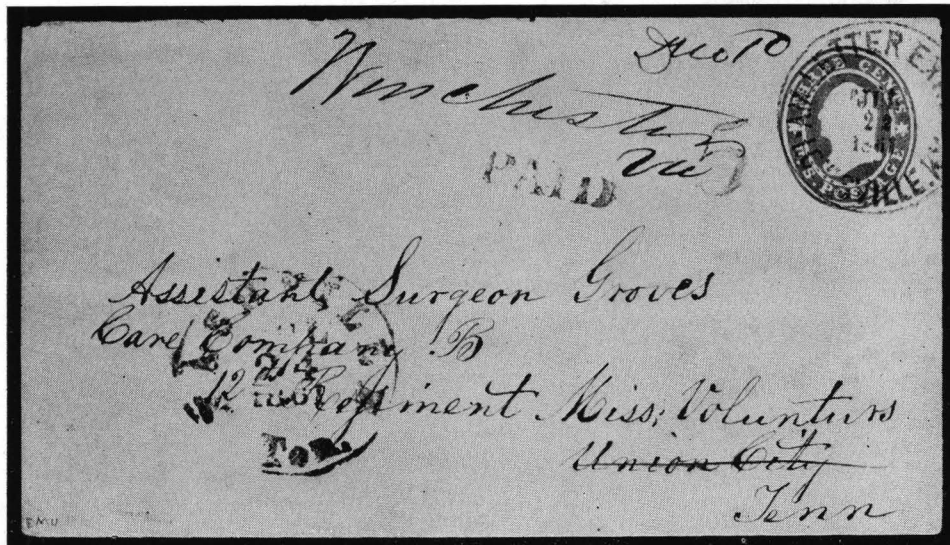 Due 10
Winchester
Va
PAID
THREE CENTS
U.S. POSTAGE
JUL
22
1861
Assistant Surgeon Groves
Care Company B
12 Regiment Miss; Volunturs
Union City
Tenn
1861
Ten.